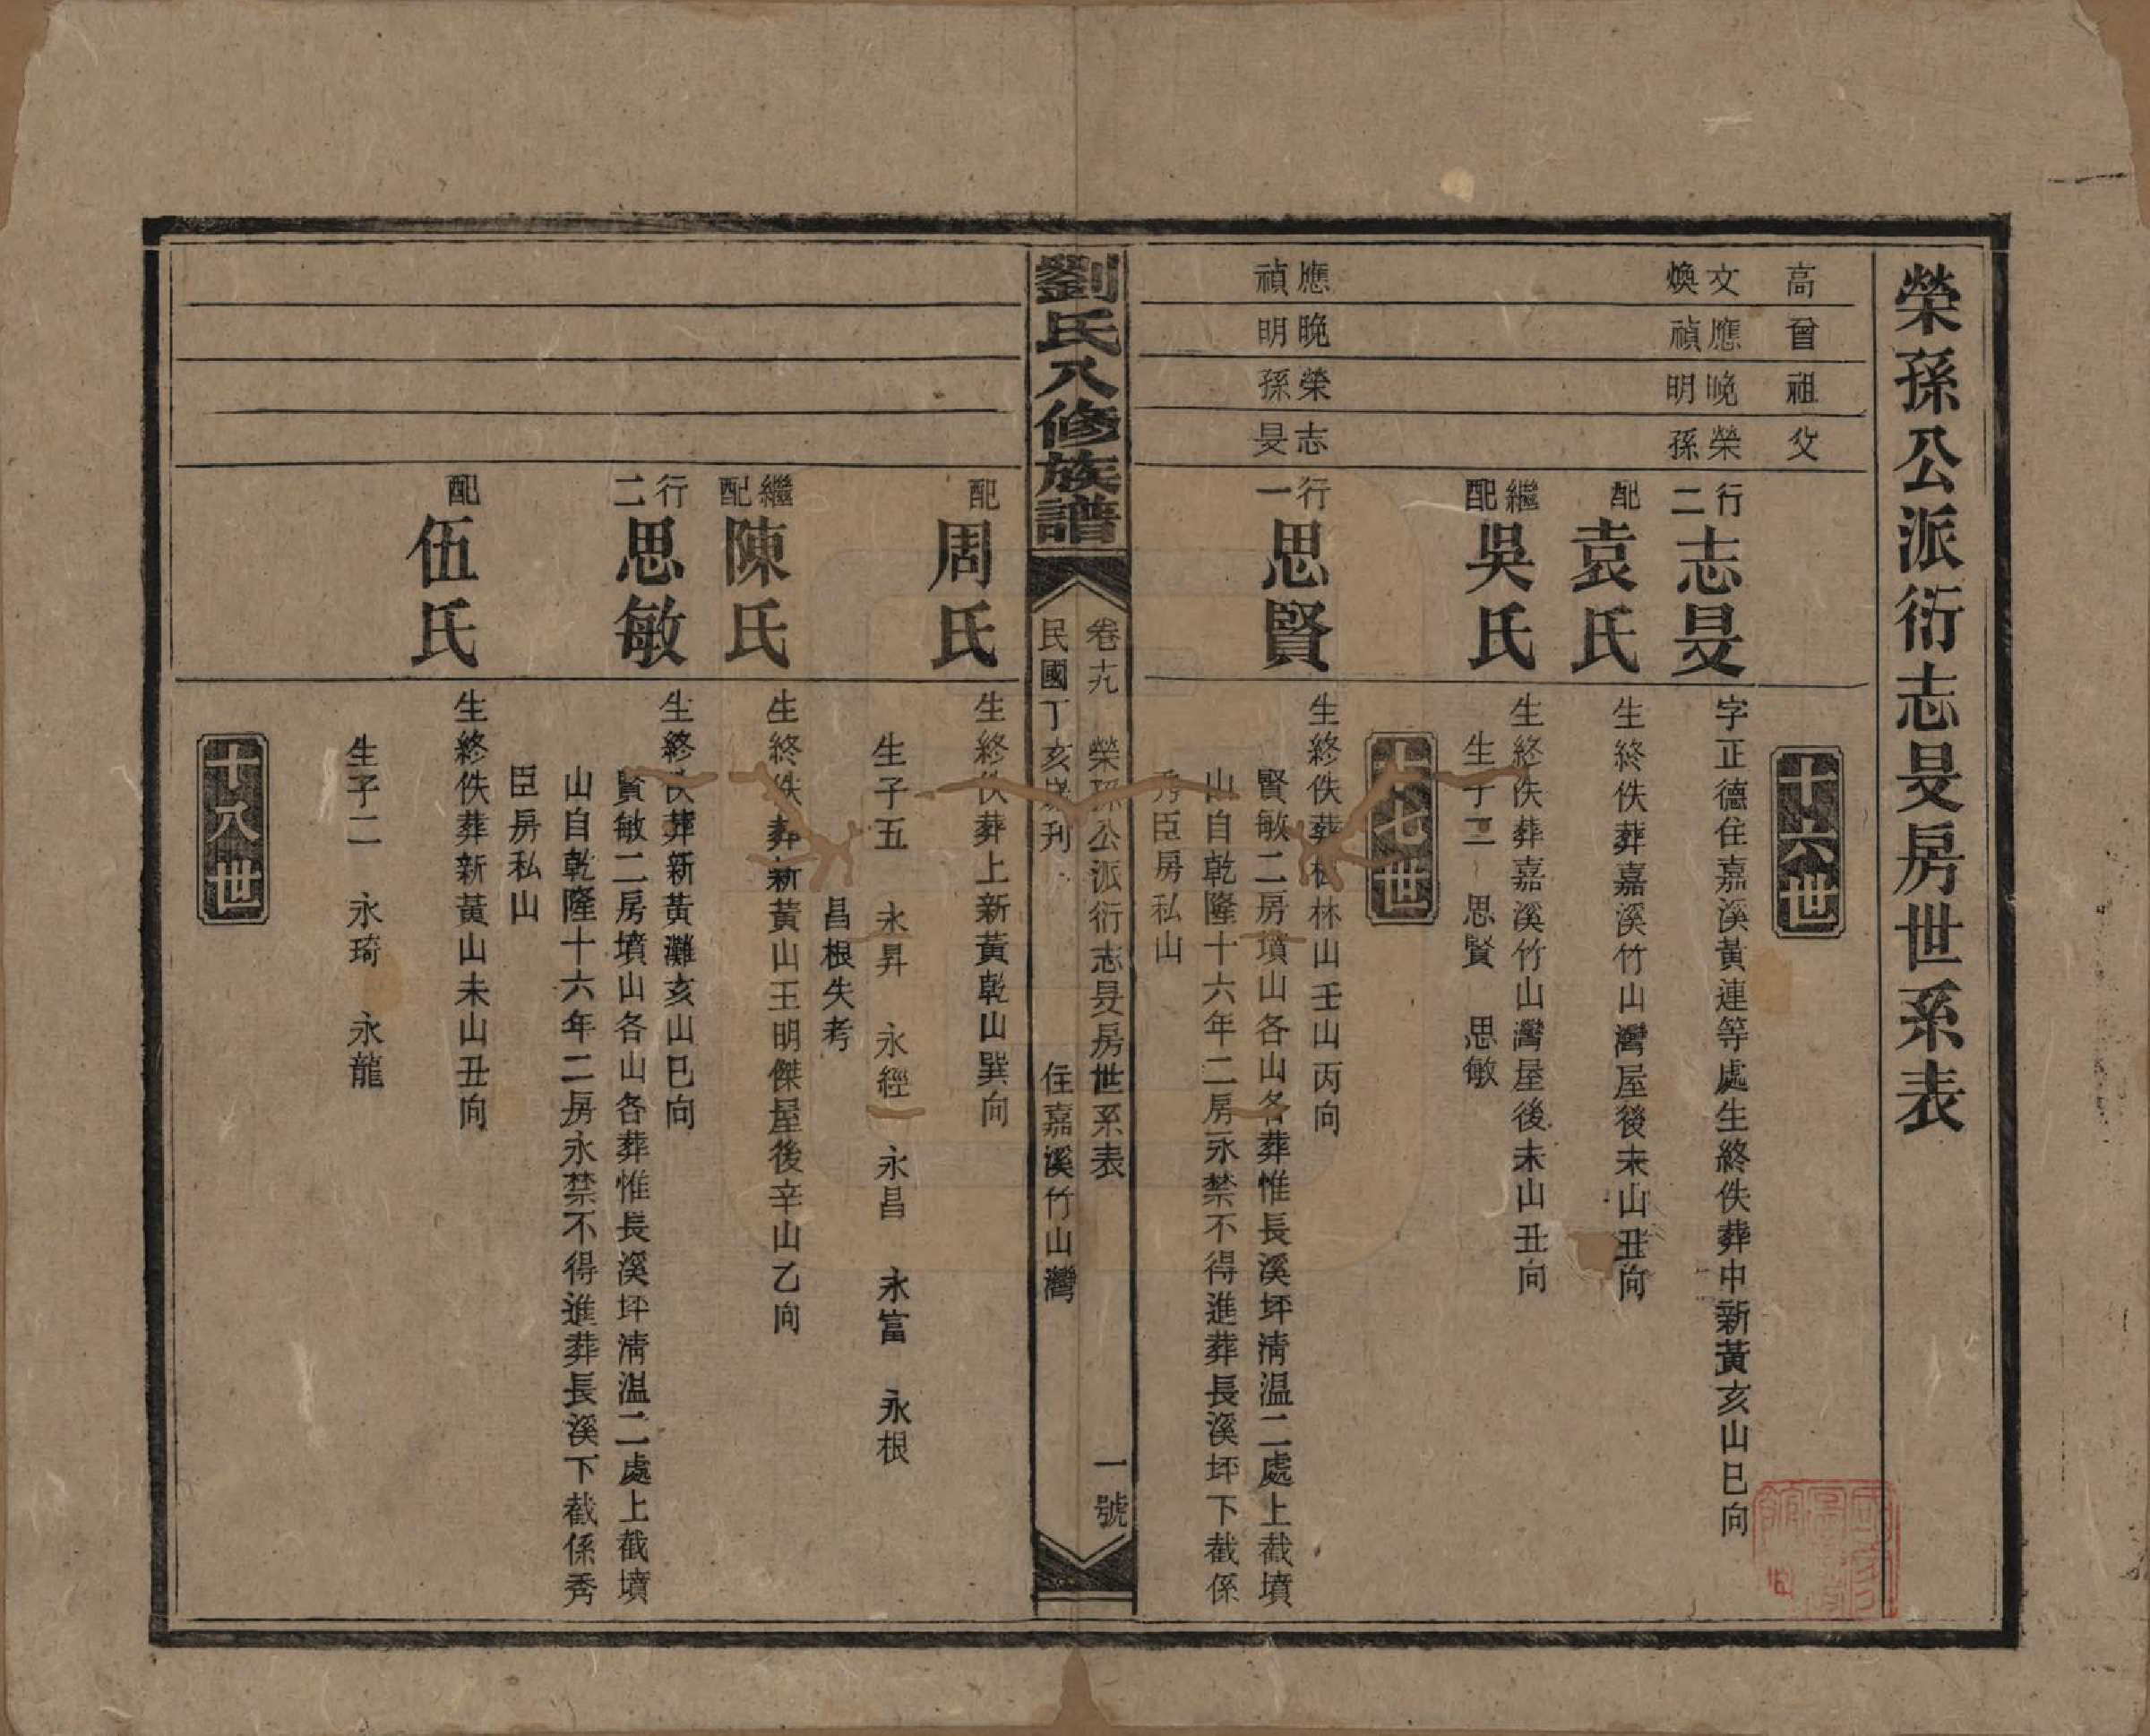 榮孫公派衍志旻房世系表
高 曾 祖 父
十六世
文煥 應禎 晚明 榮孫
行二 志旻
字正德住嘉溪黃連等處生終佚葬中新黃亥山巳向
配 袁氏
生終佚葬嘉溪竹山灣屋後未山丑向
繼配 吳氏
生終佚葬嘉溪竹山灣屋後未山丑向
生子二 思賢 思敏
十七世
應禎 晚明 榮孫 志旻
行一 思賢
生終佚葬林山壬山丙向
賢敏二房墳山各山各葬惟長溪坪清温二處上截墳
山自乾隆十六年二房永禁不得進葬長溪坪下截係
秀臣房私山
劉氏八修族譜
卷十九 榮孫公派衍志旻房世系表 一號
民國丁亥刊 住嘉溪竹山灣
配 周氏
生終佚葬上新黃乾山巽向
生子五 永昇 永經 永昌 永富 永根
昌根失考
繼配 陳氏
生終佚葬新黃山王明傑屋後辛山乙向
行二 思敏
生終佚葬新黃灘亥山巳向
賢敏二房墳山各山各葬惟長溪坪清温二處上截墳
山自乾隆十六年二房永禁不得進葬長溪下截係秀
臣房私山
配 伍氏
生終佚葬新黃山未山丑向
生子二 永琦 永龍
十八世